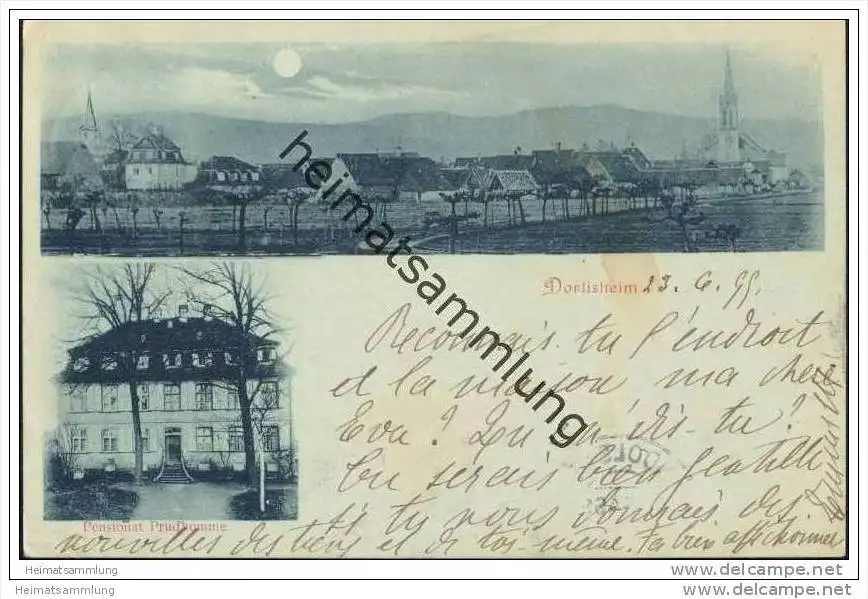 Dorlisheim 23. 6. 99.
Reconnais-tu l'endroit
et la maison ma chère
Eva? Qu'en dis-tu?
Tu serais bien gentille
si tu nous donnais des
nouvelles des tiens et de toi-même. Ta bien affectionnée
Pensionat Prudhomme
heimatsammlung
Heimatsammlung
www.delcampe.net
Heimatsammlung
www.delcampe.net